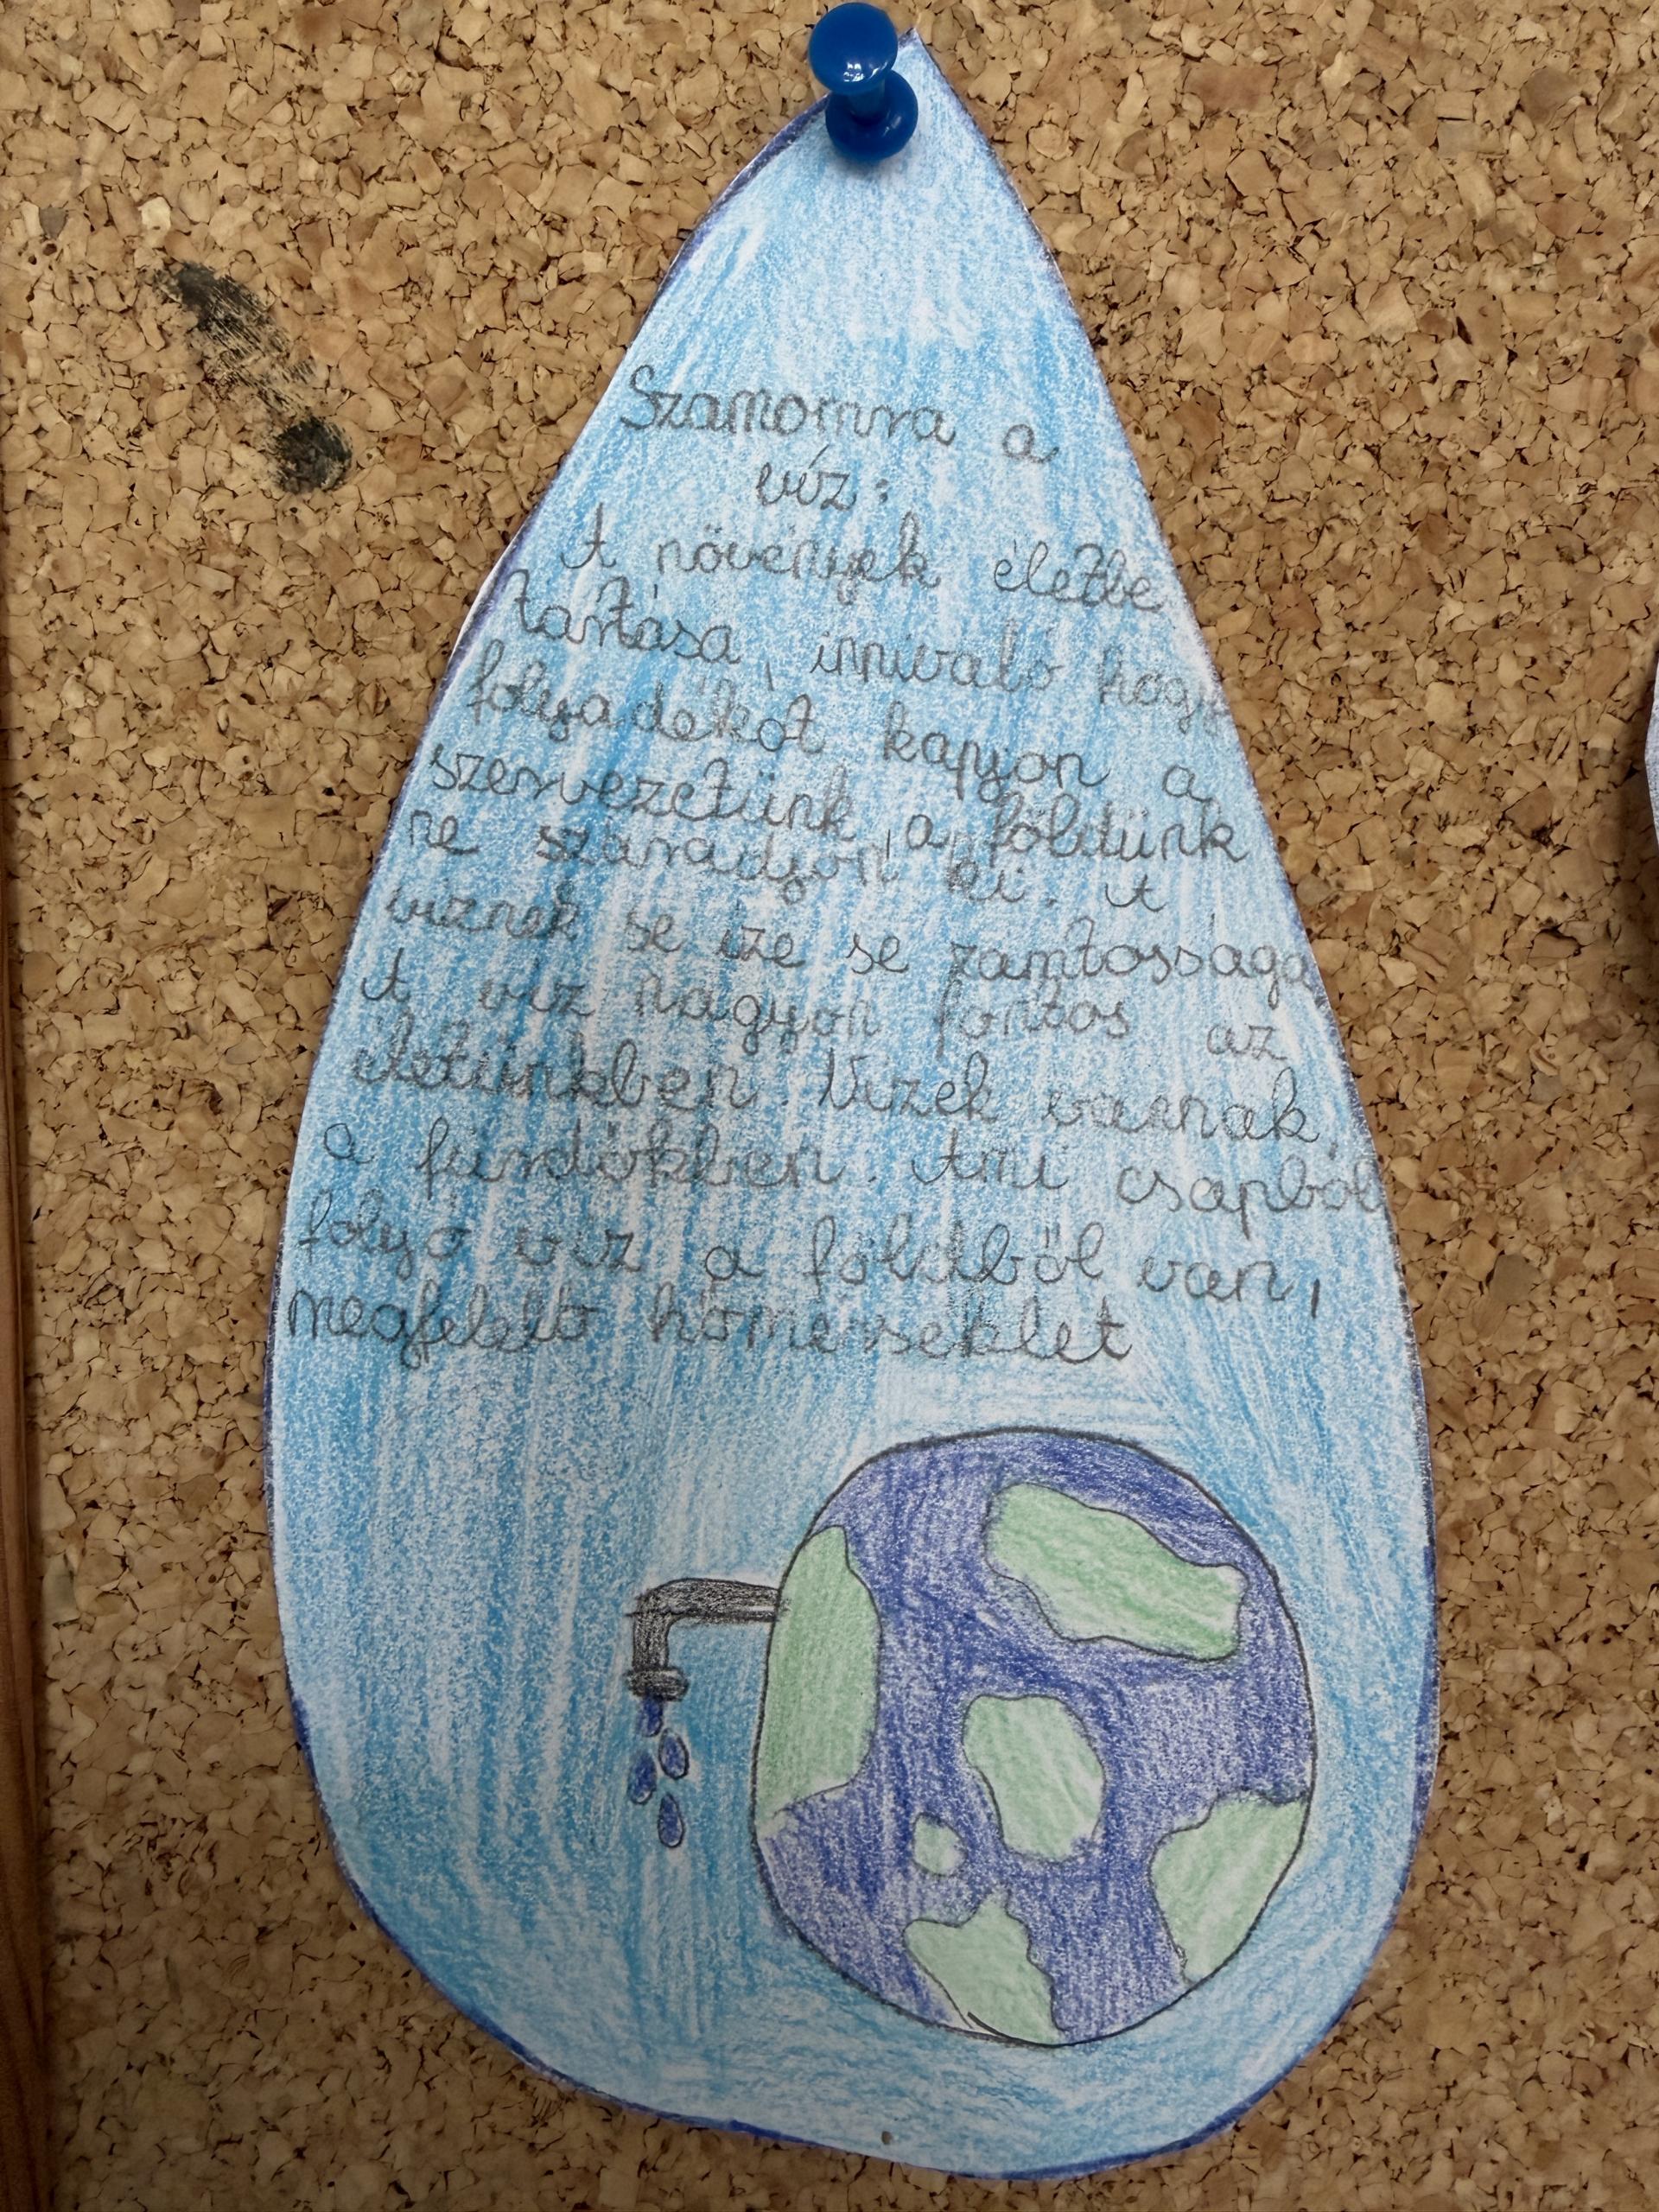 Számomra a
víz:
A növények életbe
tartása, innivaló hogy
folyadékot kapjon a
szervezetünk, a földünk
ne száradjon ki. A
víznek se íze se zamtossága
A víz nagyon fontos az
életünkben. Vizek vannak
a fürdőkben. Ami csapból
folyó víz a földből van,
megfelelő hőmérséklet